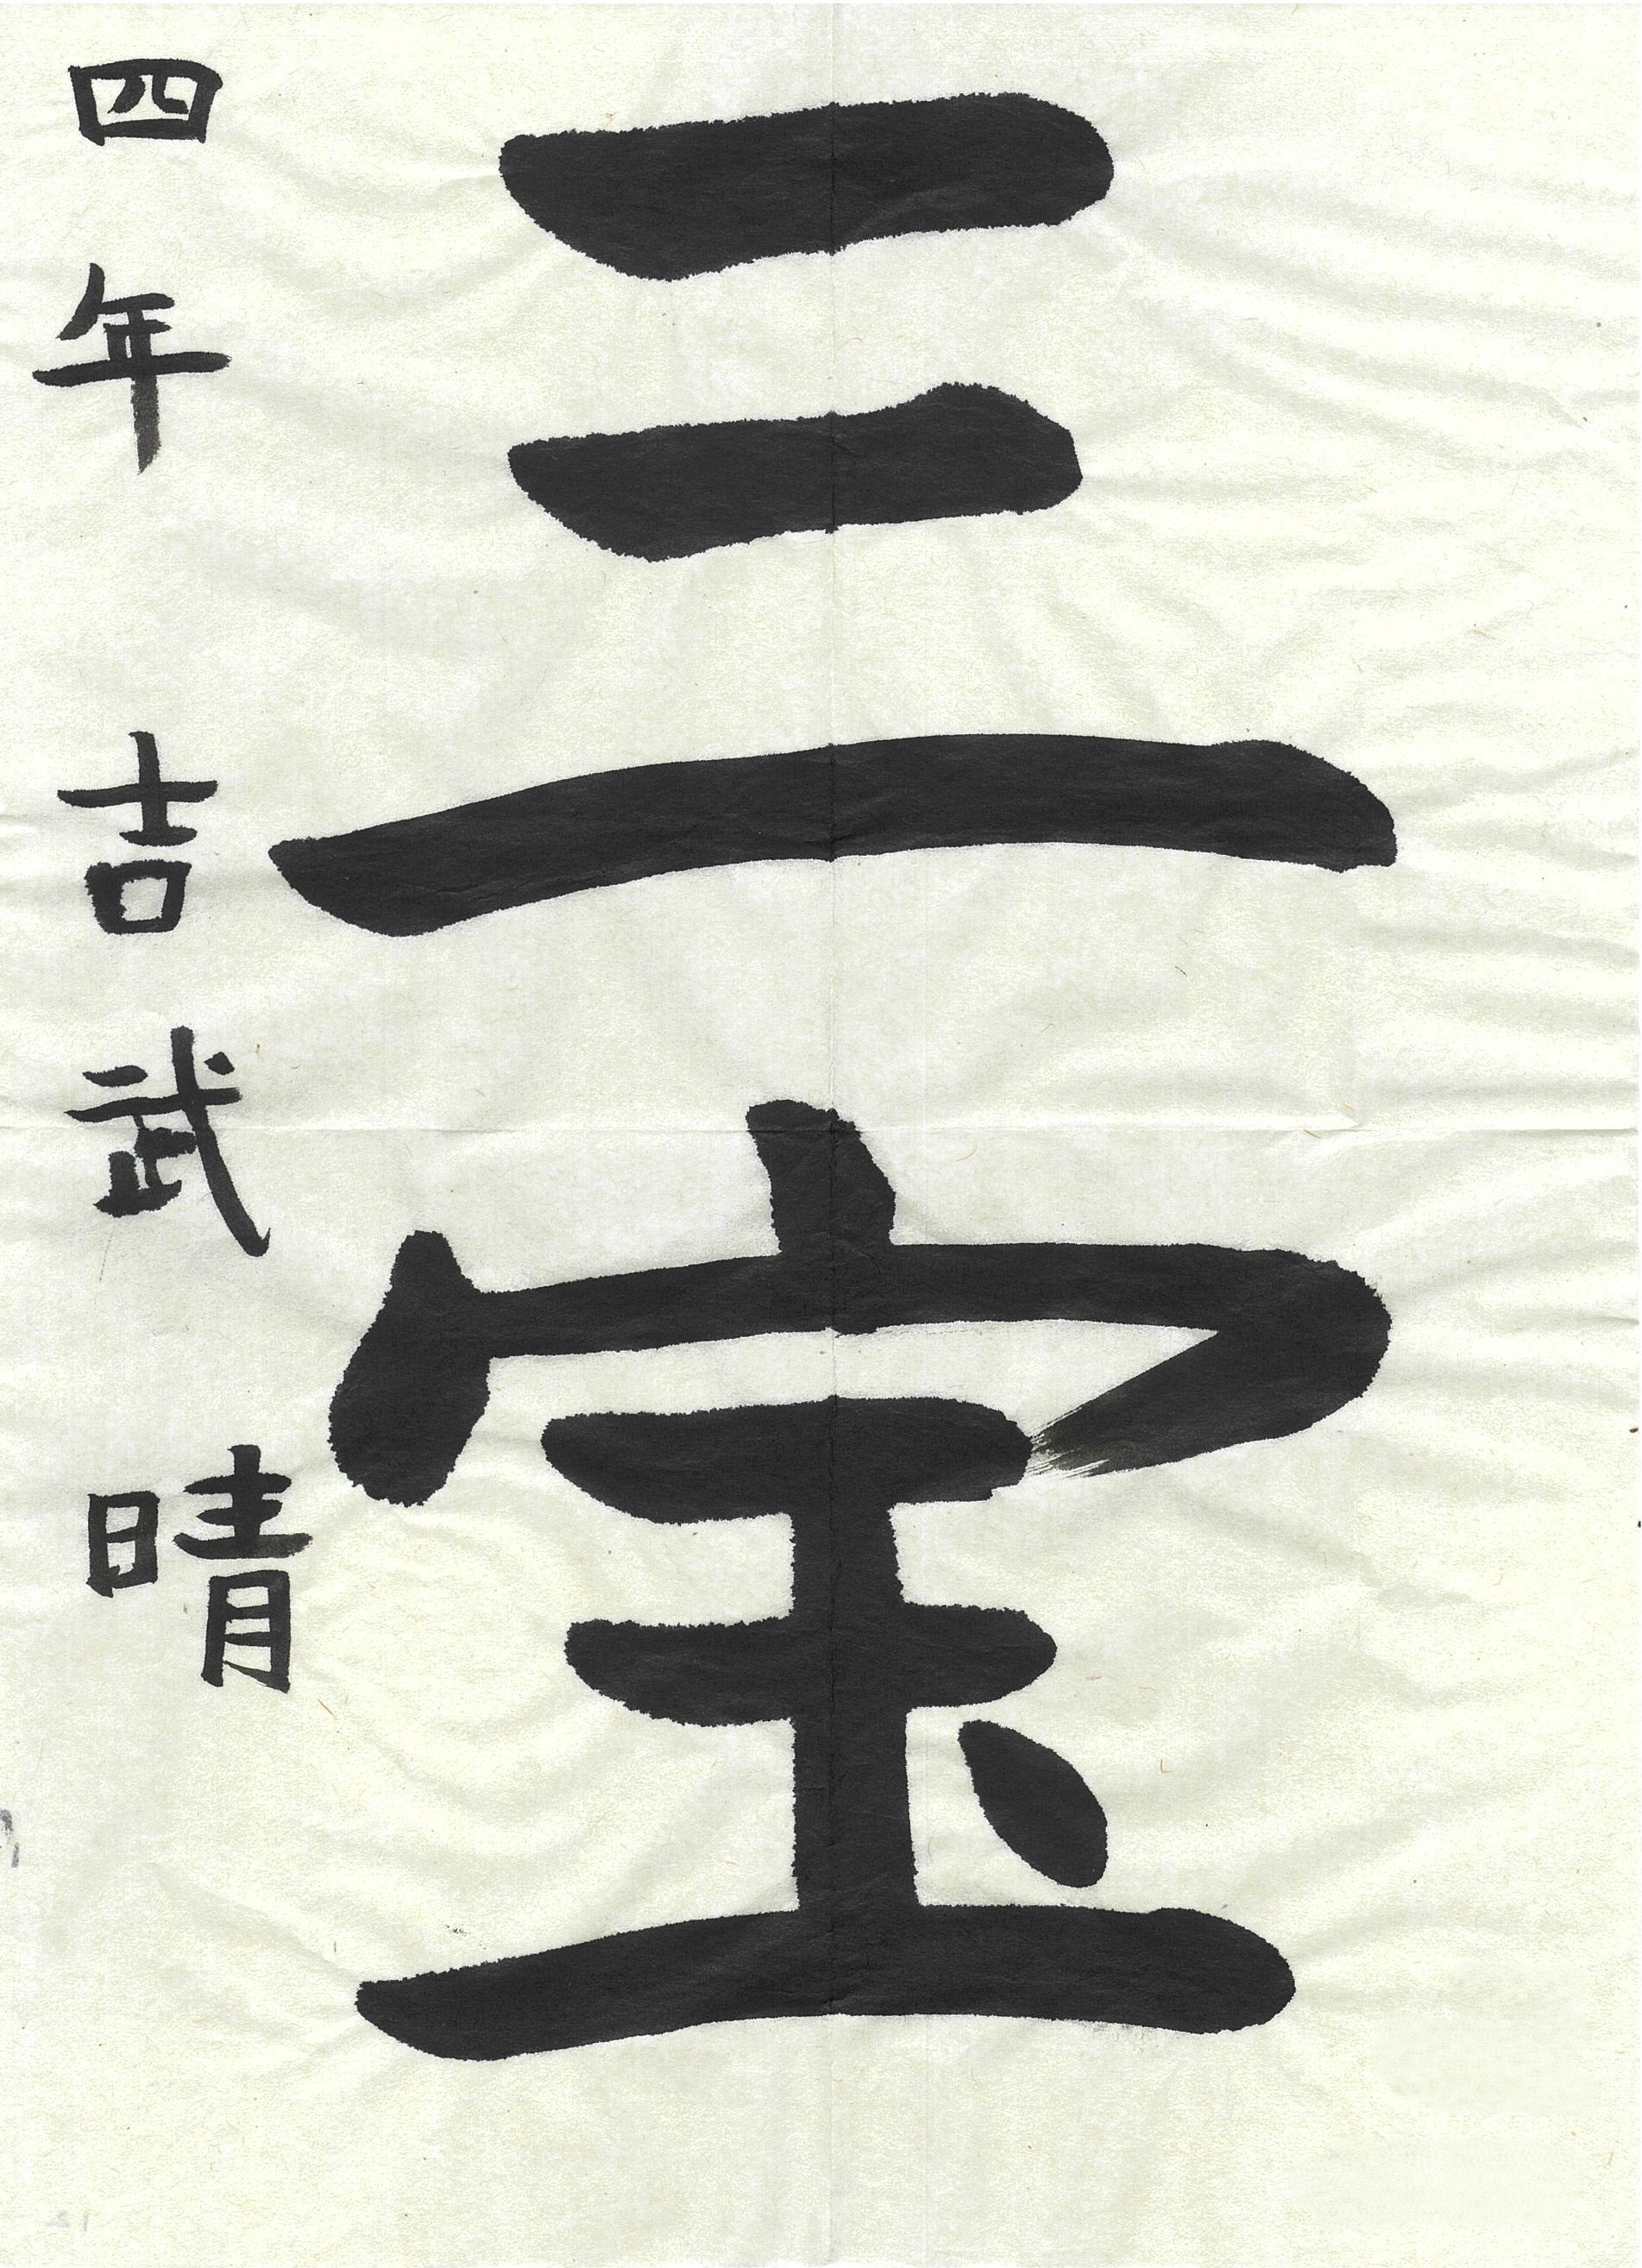 三宝
四年 吉武晴